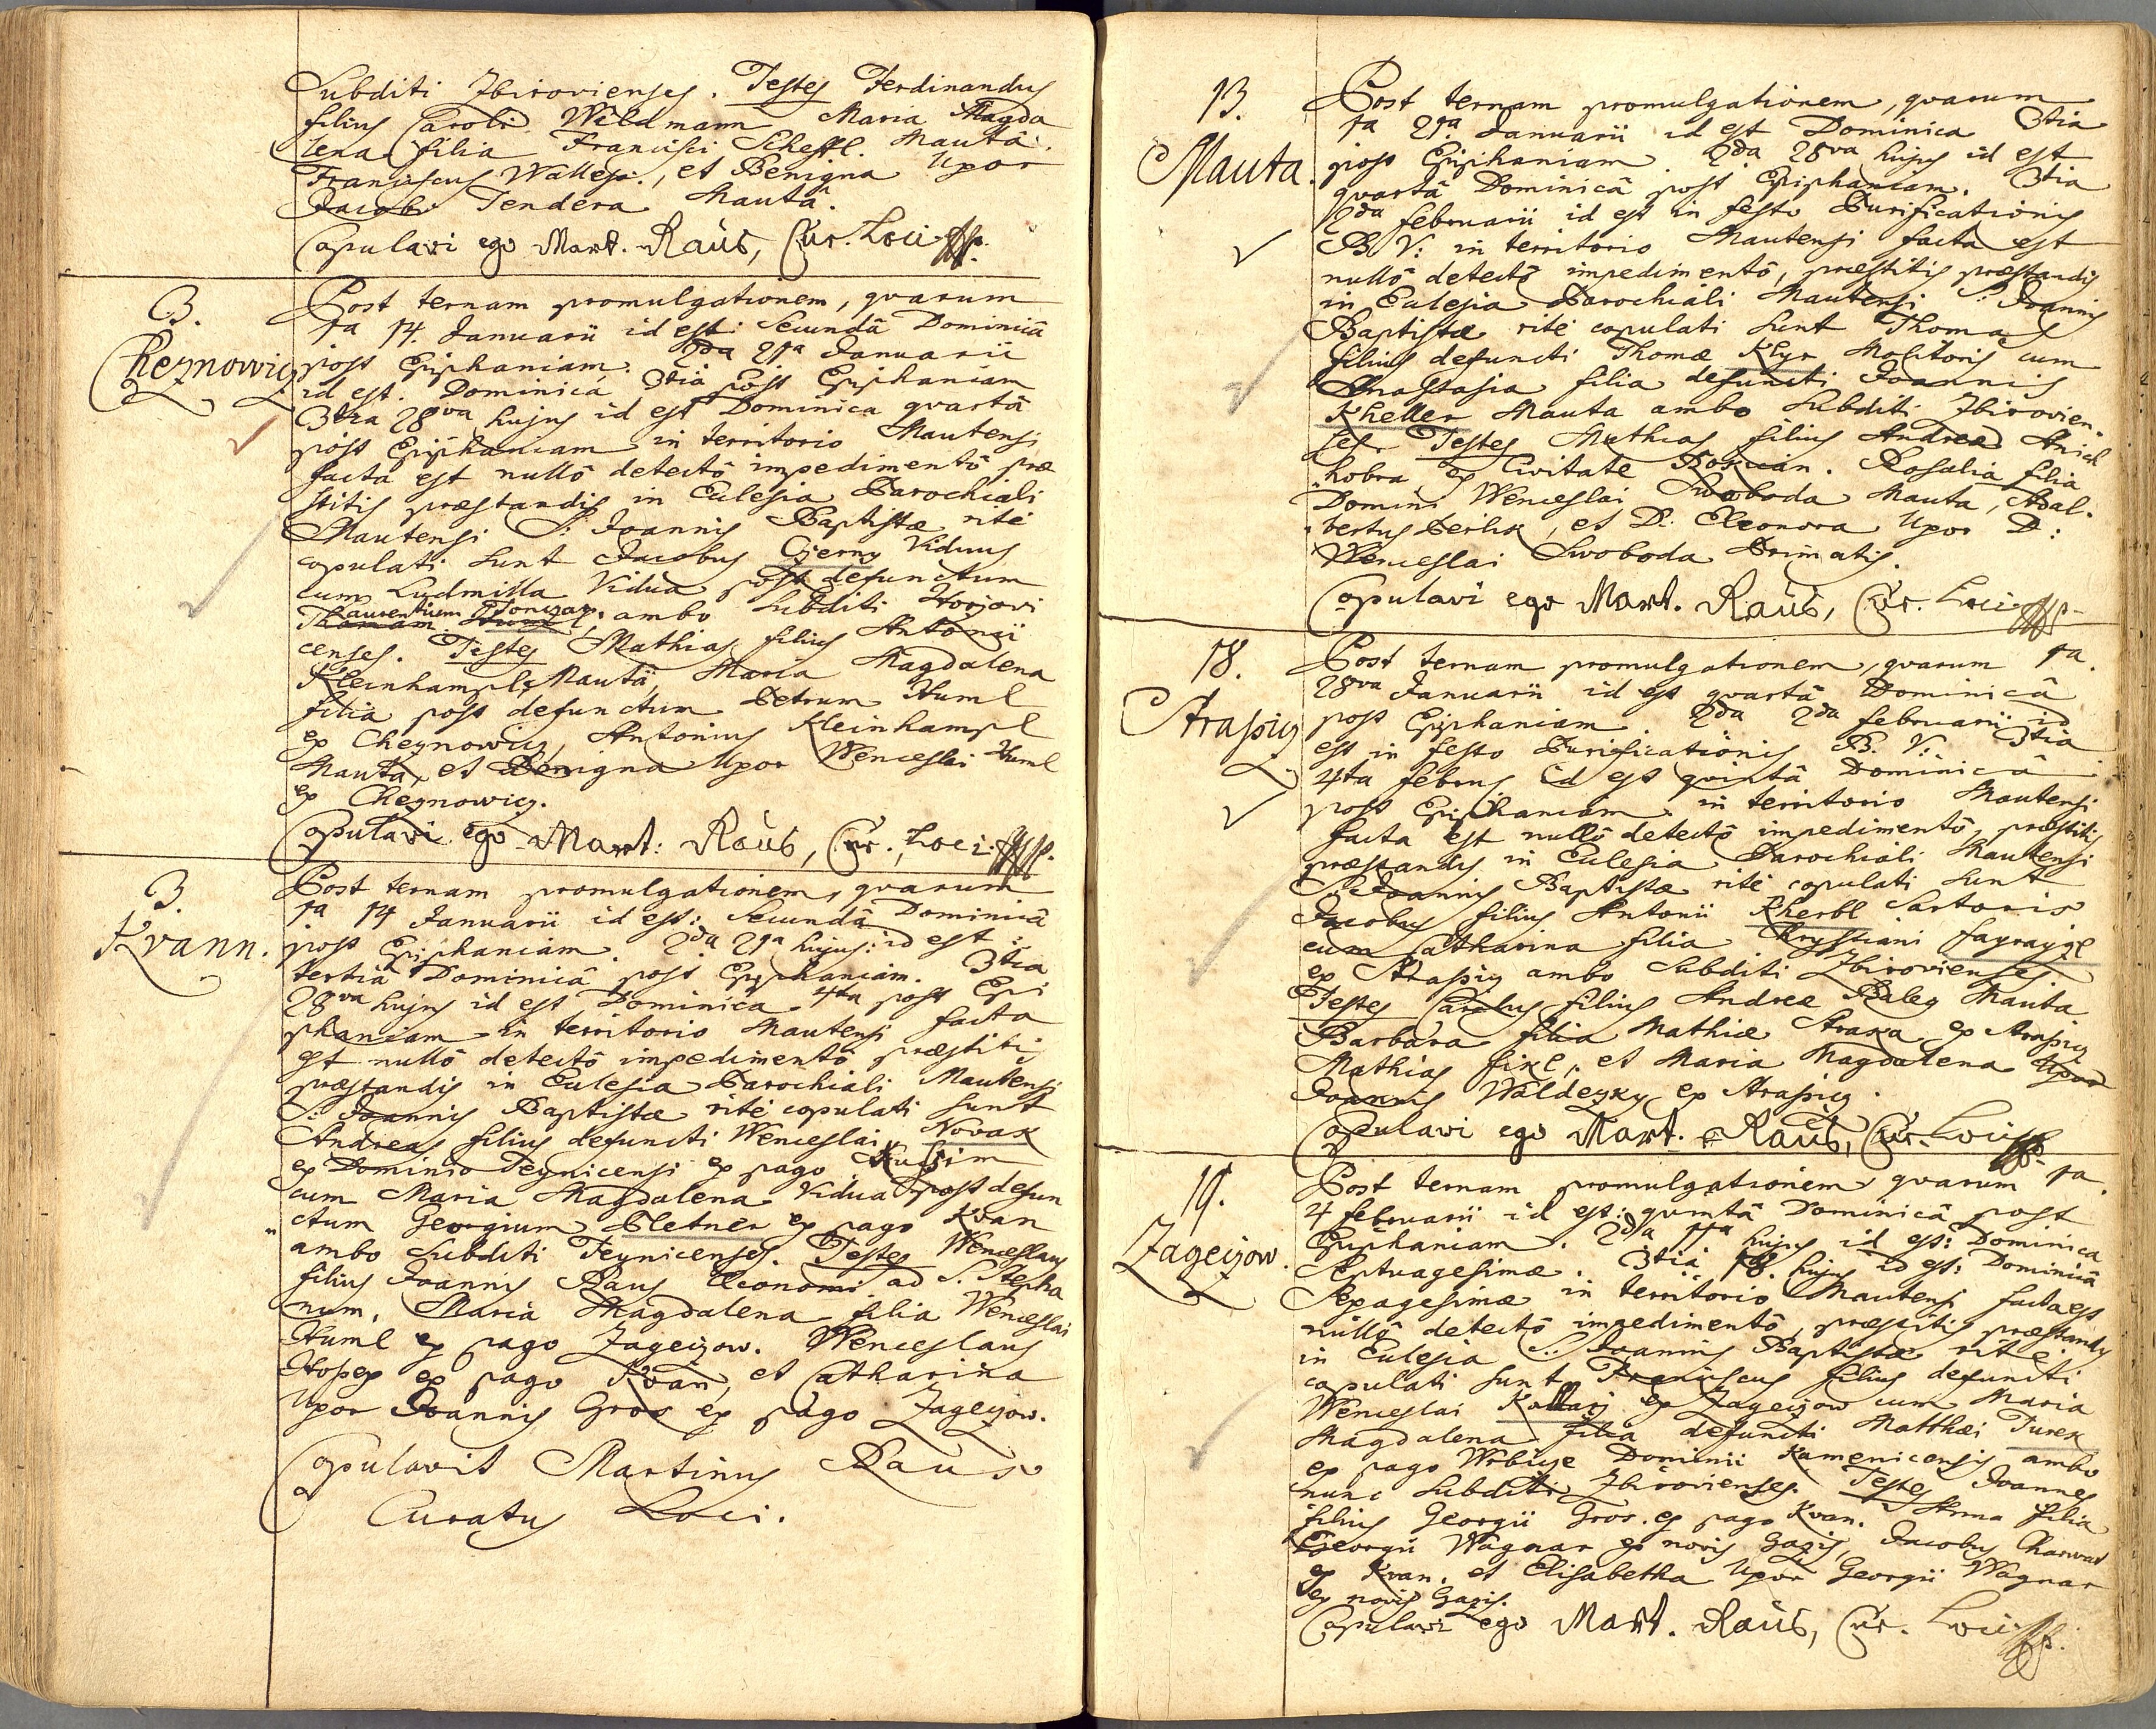 Subditi Zbirovienses. Testes Ferdinandus
filius Caroli Wildmann Maria Magda
lena filia Francisci Scheffl. Mauta.
Franciscus, et Benigna Uxor
Jacobi Tendera Mauta.
Copulavi ego Mart. Raus, Cur. Loci
3.
Cheznowicz
Post ternam promulgationem, qvarum
1a 14. Januarii id est: Secundâ Dominicâ
post Epiphaniam. 2da 21a Januarii
id est. Dominicâ 3tiâ post Epiphaniam
3tia 28va hujus id est Dominica qvartâ
post Epiphaniam in territorio Mautensi
facta est nullô detectô impedimentô præ
stitis præstandis in Eclesia Parochiali
Mautensi S: Joannis Baptistæ ritè
copulati sunt Jacobus Czerny Viduus
cum Ludmilla Vidua post defunctum
Laurentium ambo Subditi Horzovi
Thomam
censes. Testes Mathias filius Antonii
Kleinhampl Mautâ, Maria Magdalena
filia post defunctum Petrum Huml
ex Cheznowicz, Antonius Kleinhampl
Mauta, et Benigna Uxor Wenceslai Huml
ex Cheznowicz.
Copulavi ego Mart: Raus, Cur. Loci
3.
Kvann.
Post ternam promulgationem, qvarum
1a 14 Januarii id est: Secundâ Dominicâ
post Epiphaniam. 2da 21a hujus: id est:
tertiâ Dominicâ post Epiphaniam. 3tia
28va hujus id est Dominica 4ta post Epi
phaniam in territorio Mautensi facta
est nullô detectô impedimentô præstitis
præstandis in Eclesia Parochiali Mautensi
S: Joannis Baptistæ ritè copulati sunt
Andreas filius defuncti Wenceslai Novak
ex Dominio Teynicensi ex pago
cum Maria Magdalena Vidua post defun
ctum Georgium Pletner ex pago Kvan
ambo Subditi Teynicenses. Testes Wenceslaus
filius Joannis Raus Œconomi ad S. Stepha
num. Maria Magdalena filia Wenceslai
Huml ex pago Zageczow. Wenceslaus
ex pago Kvan, et Catharina
Uxor Joannis Gros ex pago Zageczow.
Copulavit Martinus Raus
Curatus Loci.
13.
Mauta.
Post ternam promulgationem, qvarum
1a 21a Januarii id est Dominica 3tia
post Epiphaniam 2da 28va hujus id est
qvartâ Dominicâ post Epiphaniam. 3tia
2da februarii id est in festo Purificationis
B. V: in territorio Mautensi facta est
nullô detectô impedimentô, præstitis præstandis
in Eclesia Parochiali Mautensi S: Joannis
Baptistæ ritè copulati sunt Thomas
filius defuncti Thomæ Klyr Molitoris cum
Anastasia filia defuncti Joannis
Kheller Mauta ambo Subditi Zbirovien-
ses. Testes Mathias filius Andreæ
ex Civitate. Rosalia filia
Domini Wenceslai Swoboda Mauta, Adal-
bertus, et D. Eleonora Uxor D:
Wenceslai Swoboda Primatis.
Copulavi ego Mart. Raus, Cur. Loci
18.
Straßicz
Post ternam promulgationem, qvarum 1a.
28va Januarii id est qvartâ Dominicâ
post Epiphaniam. 2da 2da februarii id
est in festo Purificationis B. V: 3tia
4ta febrius id est qvintâ Dominicâ
post Epiphaniam in territorio Mautensi
facta est nullô detectô impedimentô, præstitis
præstandis in Eclesia Parochiali Mautensi
S. Joannis Baptistæ ritè copulati sunt
Jacobus filius Antonii Kherbl Sartoris
cum Catharina filia Chrystiani
ex Straßicz ambo Subditi Zbirovienses
Testes Carolus filius Andreæ Mauta
Barbara filia Mathiæ Straka ex Straßicz
Mathias, et Maria Magdalena Uxor
Joannis Waldezky ex Straßicz.
Copulavi ego Mart. Raus, Cur. Loci
19.
Zageczow.
Post ternam promulgationem qvarum 1a.
4 februarii id est: qvintâ Dominicâ post
Epiphaniam. 2da 11a hujus id est: Dominica
Septuagesimæ. 3tiâ 18. hujus id est: Dominicâ
Sexagesimæ in territorio Mautensi facta est
nullô detectô impedimentô, præstitis præstandis
in Eclesia S. Joannis Baptistæ ritè
copulati sunt Franciscus filius defuncti
Wenceslai ex Zageczow cum Maria
Magdalena filia defuncti Matthæi Turek
ex pago Dominii Kamenicensis ambo
nunc Subditi Zbirovienses. Testes Joannes
filius Georgii Gros. ex pago Kvan. Anna filia
Georgii Wagnar ex novis Gazis, Jacobus Charwat
ex Kvan, et Elisabetha Uxor Georgii Wagnar
ex novis Gazis.
Copulavi ego Mart. Raus, Cur. Loci